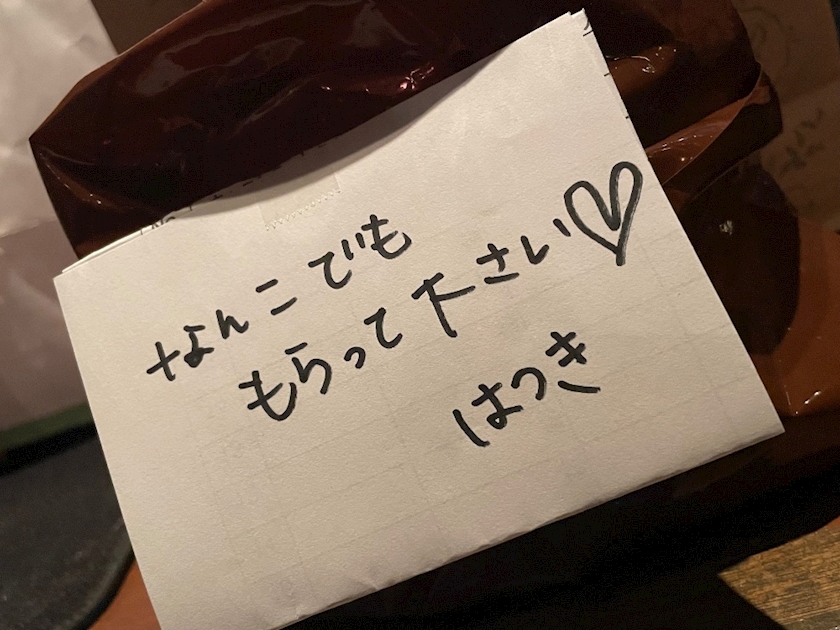 なんこでも
もらって下さい♡
はつき